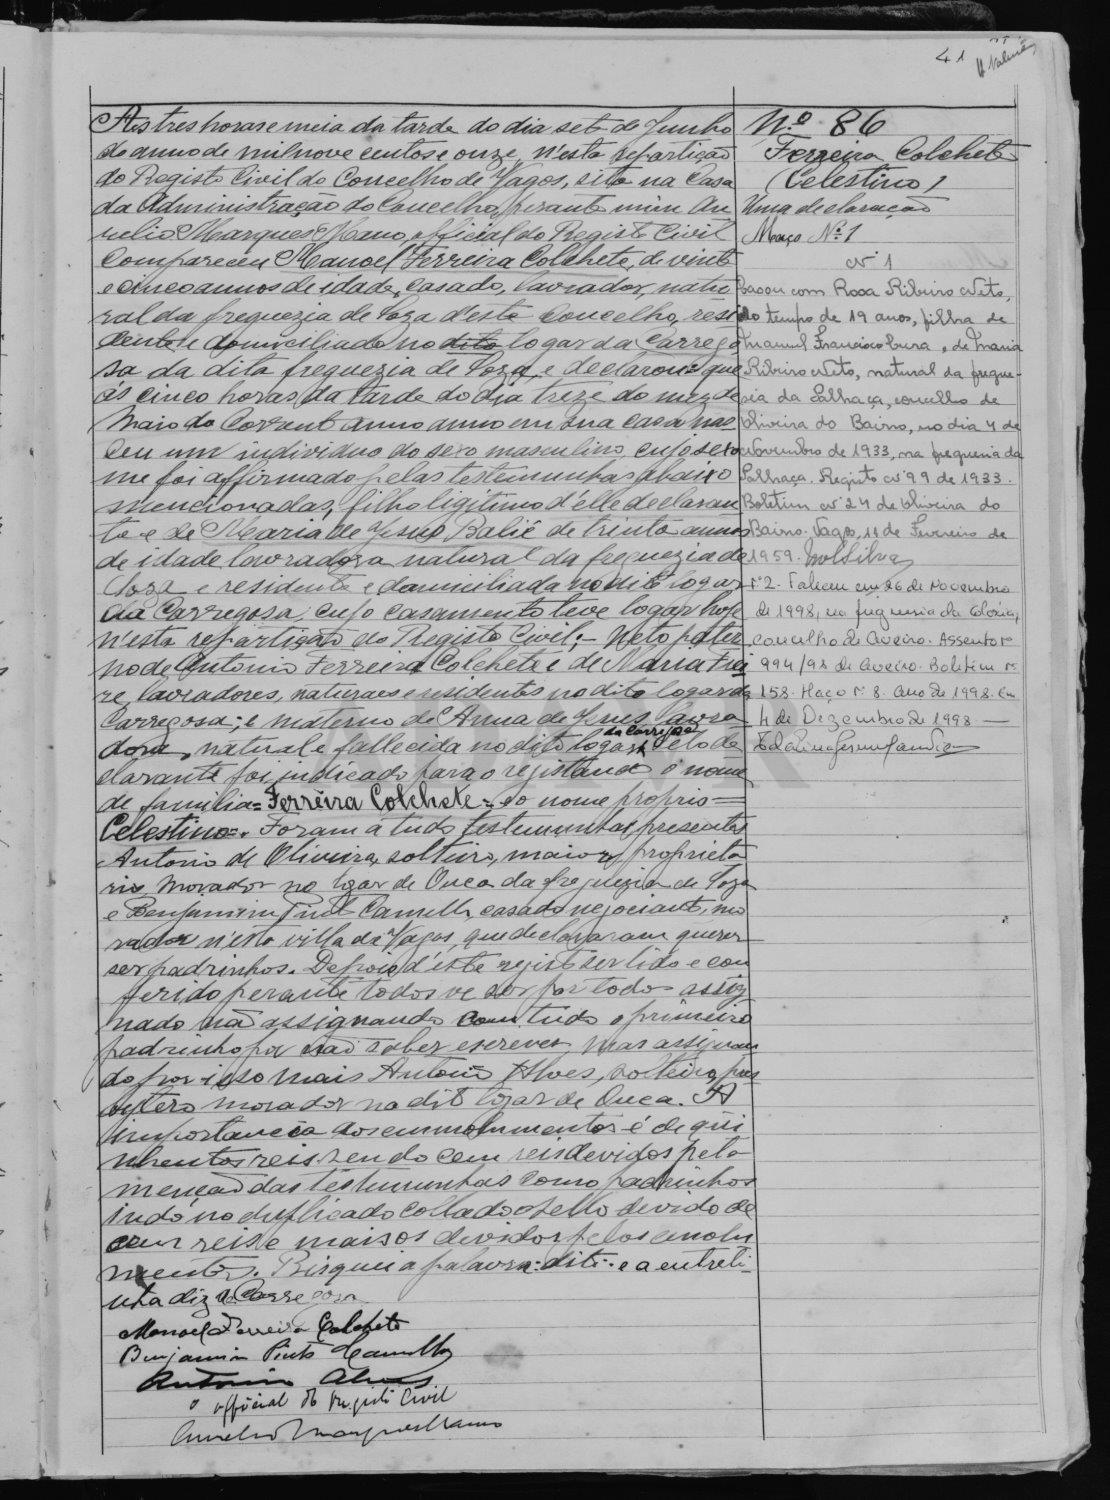 41
Nº 86
Ferreira Colchete
(Celestino)
Uma declaração
Março Nº 1
Nº 1
Casou com Rosa Ribeiro Neto,
do tempo de 19 anos, filha de
Manuel Francisco Cura, de Maria
Ribeiro Neto, natural da fregue-
sia da Palhaça, concelho de
Oliveira do Bairro, no dia 4 de
Novembro de 1933, na freguesia da
Palhaça. Registo nº 99 de 1933.
Boletim nº 24 de Oliveira do
Bairro. Vagos, 11 de Fevereiro de
1959.
Nº 2. Faleceu em 26 de Novembro
de 1998, na freguesia da Glória,
concelho de Aveiro. Assento nº
994/98 de Aveiro. Boletim nº
158. Maço nº 8. Ano de 1998. Em
4 de Dezembro de 1998 —
Ás tres horas e meia da tarde do dia sete de Junho
do anno de mil nove centos e onze, n'esta repartição
do Registo Civil do Concelho de Vagos, sita na Casa
da Administração do Concelho, perante mim Au
relio Marques Mano, official do Registo Civil
Compareceu Manoel Ferreira Colchete, de vinte
e cinco annos de idade, casado, lavrador, natu
ral da freguezia de Soza d'este Concelho, resi
dente e domiciliado no dito logar da Carrego
sa da dita freguezia de Soza, e declarou: que
ás cinco horas da tarde do dia treze do mez de
Maio do Corrente anno anno em sua casa nas
ceu um individuo do sexo masculino, cujo sexo
me foi affirmado pelas testemunhas abaixo
mencionadas, filho ligitimo d'elle declaran
te e de Maria de Jesus Balié de trinta annos
de idade lavradora natural da freguezia de
Soza e residente e domiciliada no dito logar
da Carregosa, cujo casamento teve logar hoje
n'esta repartição do Registo Civil; Neto pater
no de Antonio Ferreira Colchete e de Maria Frei
re, lavradores, naturaes e residentes no dito logar da
Carregosa; e materno de Anna de Jesus lavra
dora, natural e fallecida no dito logar da Carregosa Pelo de
clarante foi indicado para o registando o nome
de familia = Ferreira Colchete = e o nome proprio =
Celestino =. Foram a tudo testemunhas presentes
Antonio de Oliveira, solteiro, maior, proprieta
rio, morador no logar de Ouca da freguezia de Soza
e Benjamim Pinto Camello, casado negociante, mo
rador n'esta villa de Vagos, que declararam querer
ser padrinhos. Depois d'este registo ser lido e con
ferido perante todos vae ser por todos assig
nado não assignando com tudo o primeiro
padrinho por não saber escrever, mas assignan
do por isso mais Antonio Alves, solteiro, pres
bytero morador no dito logar de Ouca. A
importancia dos emmolumentos é de qui
nhentos reis sendo cem reis devidos pela
menção das testemunhas como padrinhos
indo no duplicado collado o sello devido de
cem reis e mais os devidos pelos emolu
mentos. Risquei a palavra: dito: e a entreli-
nha diz da Carregosa
Manoel Ferreira Colchete
Benjamim Pinto Camello
Antonio Alves
O official do Registo Civil
Aurelio Marques Mano